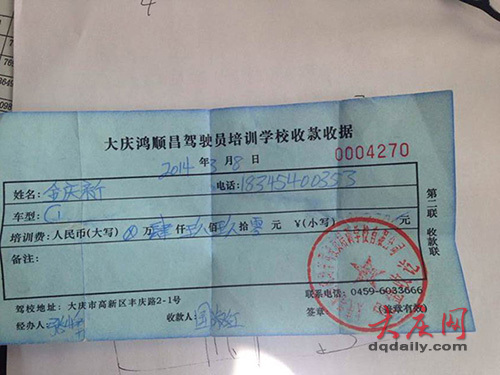 大庆鸿顺昌驾驶员培训学校收款收据
2014年3月8日
0004270
姓名:金庆新 电话:18345400353
车型:C1
培训费:人民币(大写)⊗万肆仟玖佰玖拾零元 ¥(小写) 元
备注:
第二联 收款联
驾校地址:大庆市高新区丰庆路2-1号 联系电话:0459-6033666
经办人: 收款人: 签章 (签章有效)
大庆网
dqdaily.com